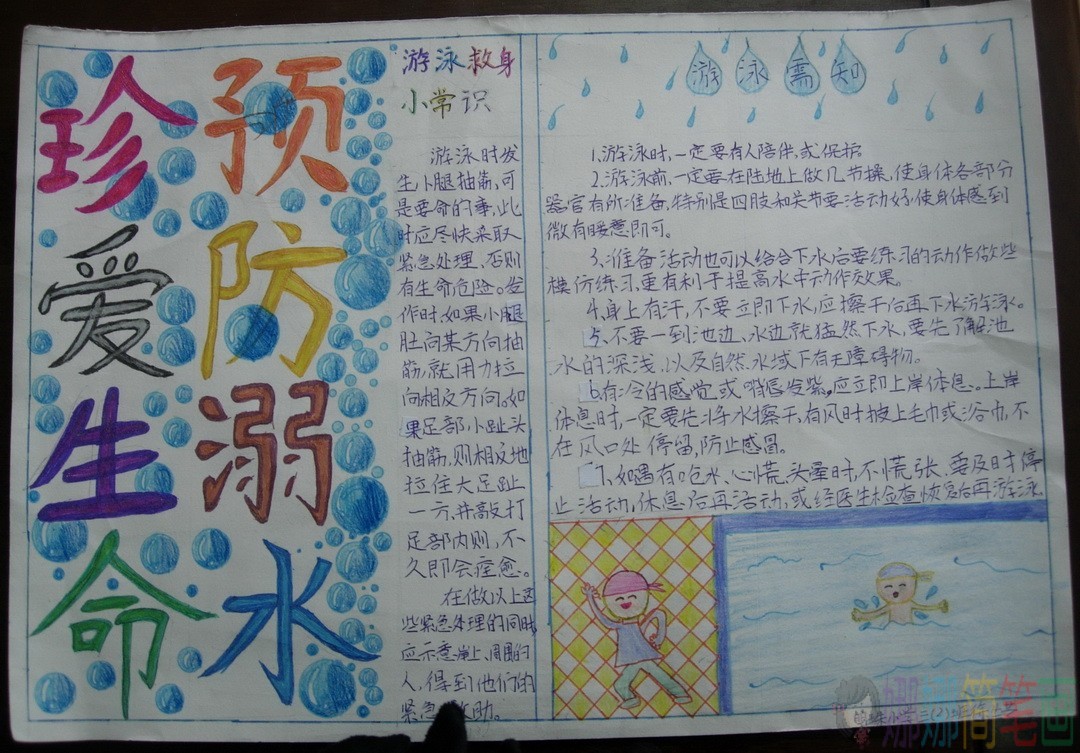 珍爱生命
预防溺水
游泳救身
小常识
游泳时发
生小腿抽筋,可
是要命的事,此
时应尽快采取
紧急处理、否则
有生命危险。发
作时,如果小腿
肚向某方向抽
筋,就用力拉
向相反方向。如
果足部小趾头
抽筋,则相反地
拉住大足趾
一方,并敲打
足部内则,不
久即会痊愈。
在做以上这
些紧急处理的同时,
应示意岸上、周围的
人,得到他们的
紧急救助。
游泳需知
1、游泳时,一定要有人陪伴,或保护。
2、游泳前,一定要在陆地上做几节操,使身体各部分
器官有所准备,特别是四肢和关节要活动好,使身体感到
微有暖意即可。
3、准备活动也可以结合下水后要练习的动作做些
模仿练习,更有利于提高水中动作效果。
4、身上有汗,不要立即下水,应擦干后再下水游泳。
5、不要一到池边、水边就猛然下水,要先了解池
水的深浅、以及自然水域下有无障碍物。
6、有冷的感觉或嘴唇发紫,应立即上岸休息。上岸
休息时,一定要先将水擦干,有风时披上毛巾或浴巾,不
在风口处停留,防止感冒。
7、如遇有呛水、心慌、头晕时,不慌张,要及时停
止活动,休息后再活动,或经医生检查恢复后再游泳
娜娜简笔画